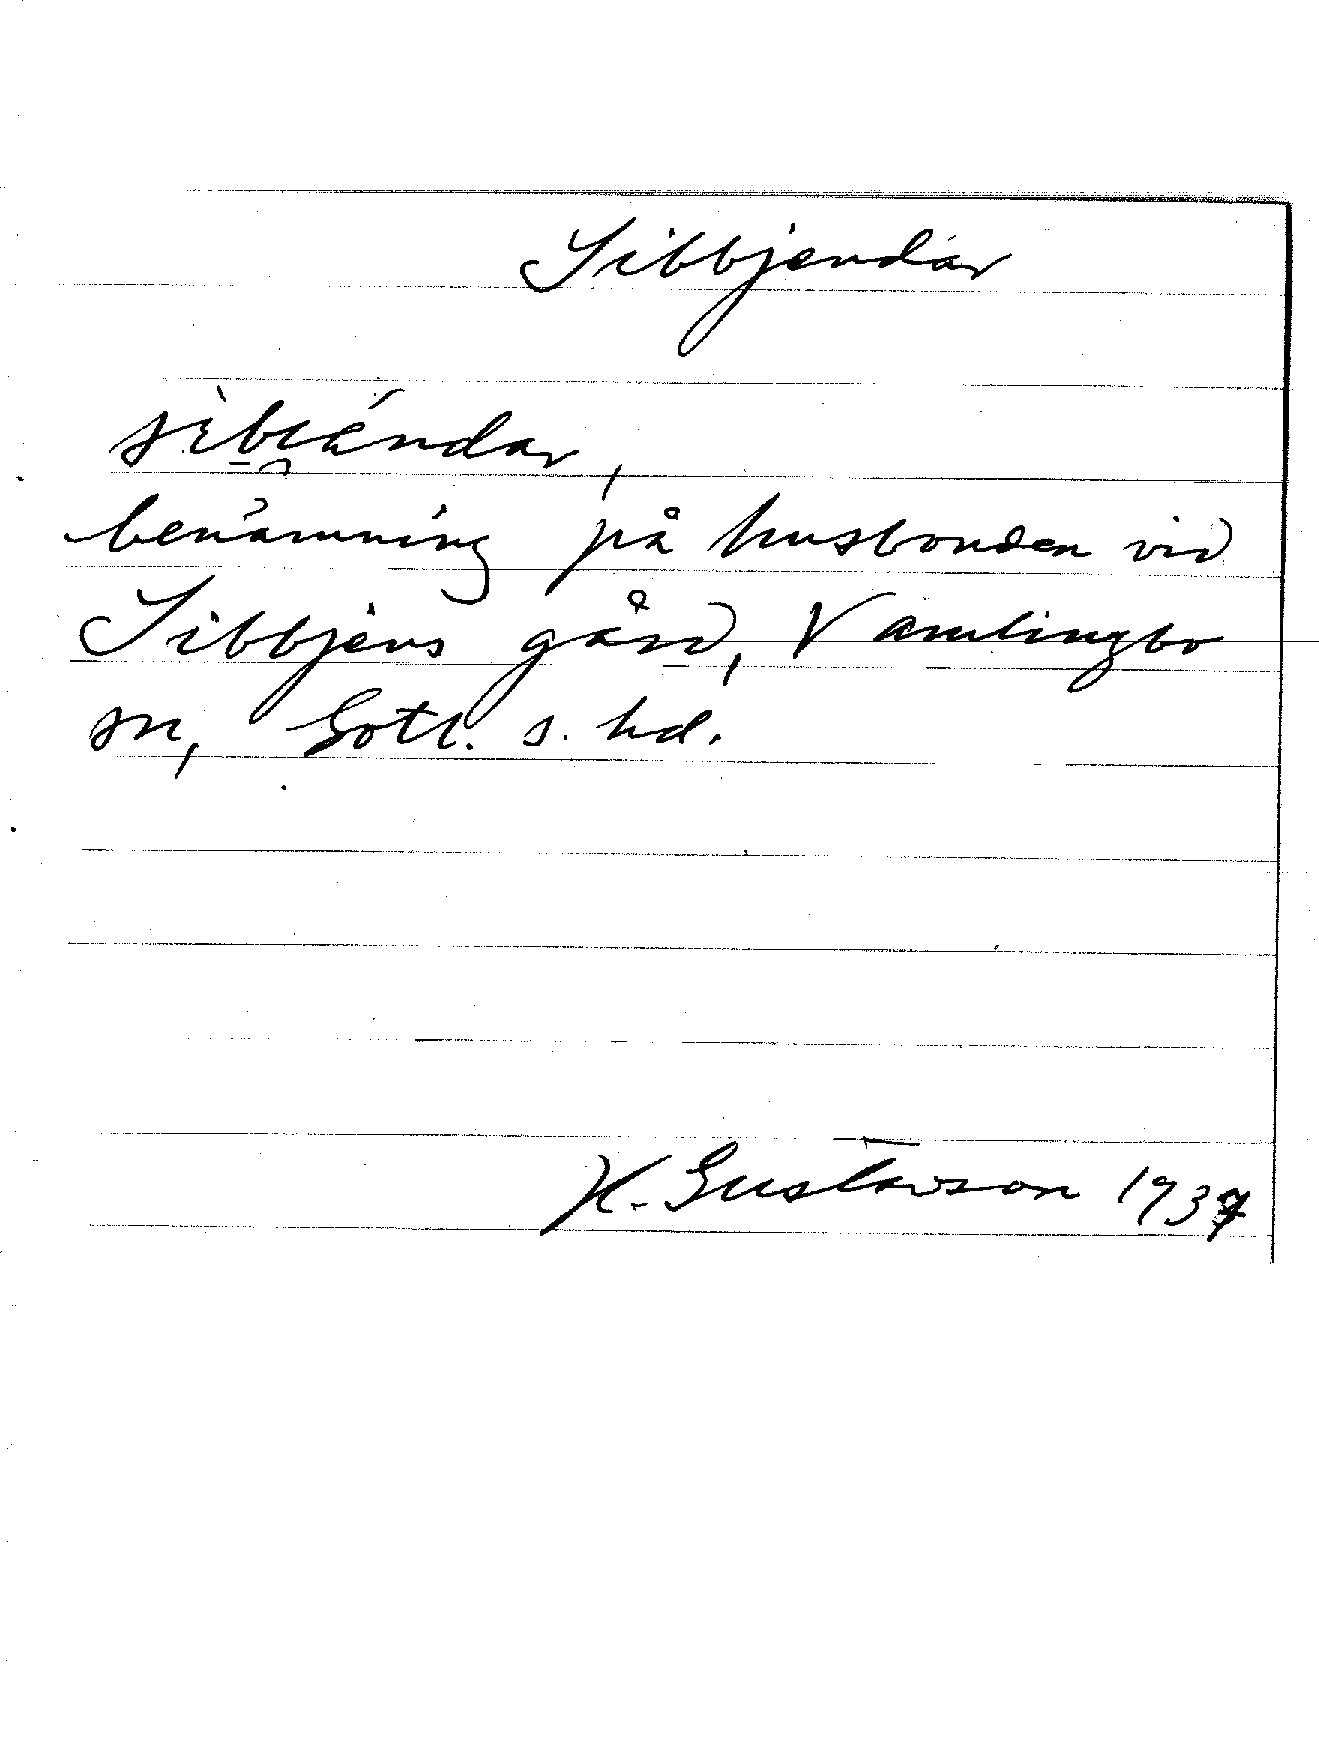 Sibbjendar
benämning på husbonden vid
Sibbjens gård, Vamlingbo
sn, Gotl. s. hd.
H. Gustavson 1937